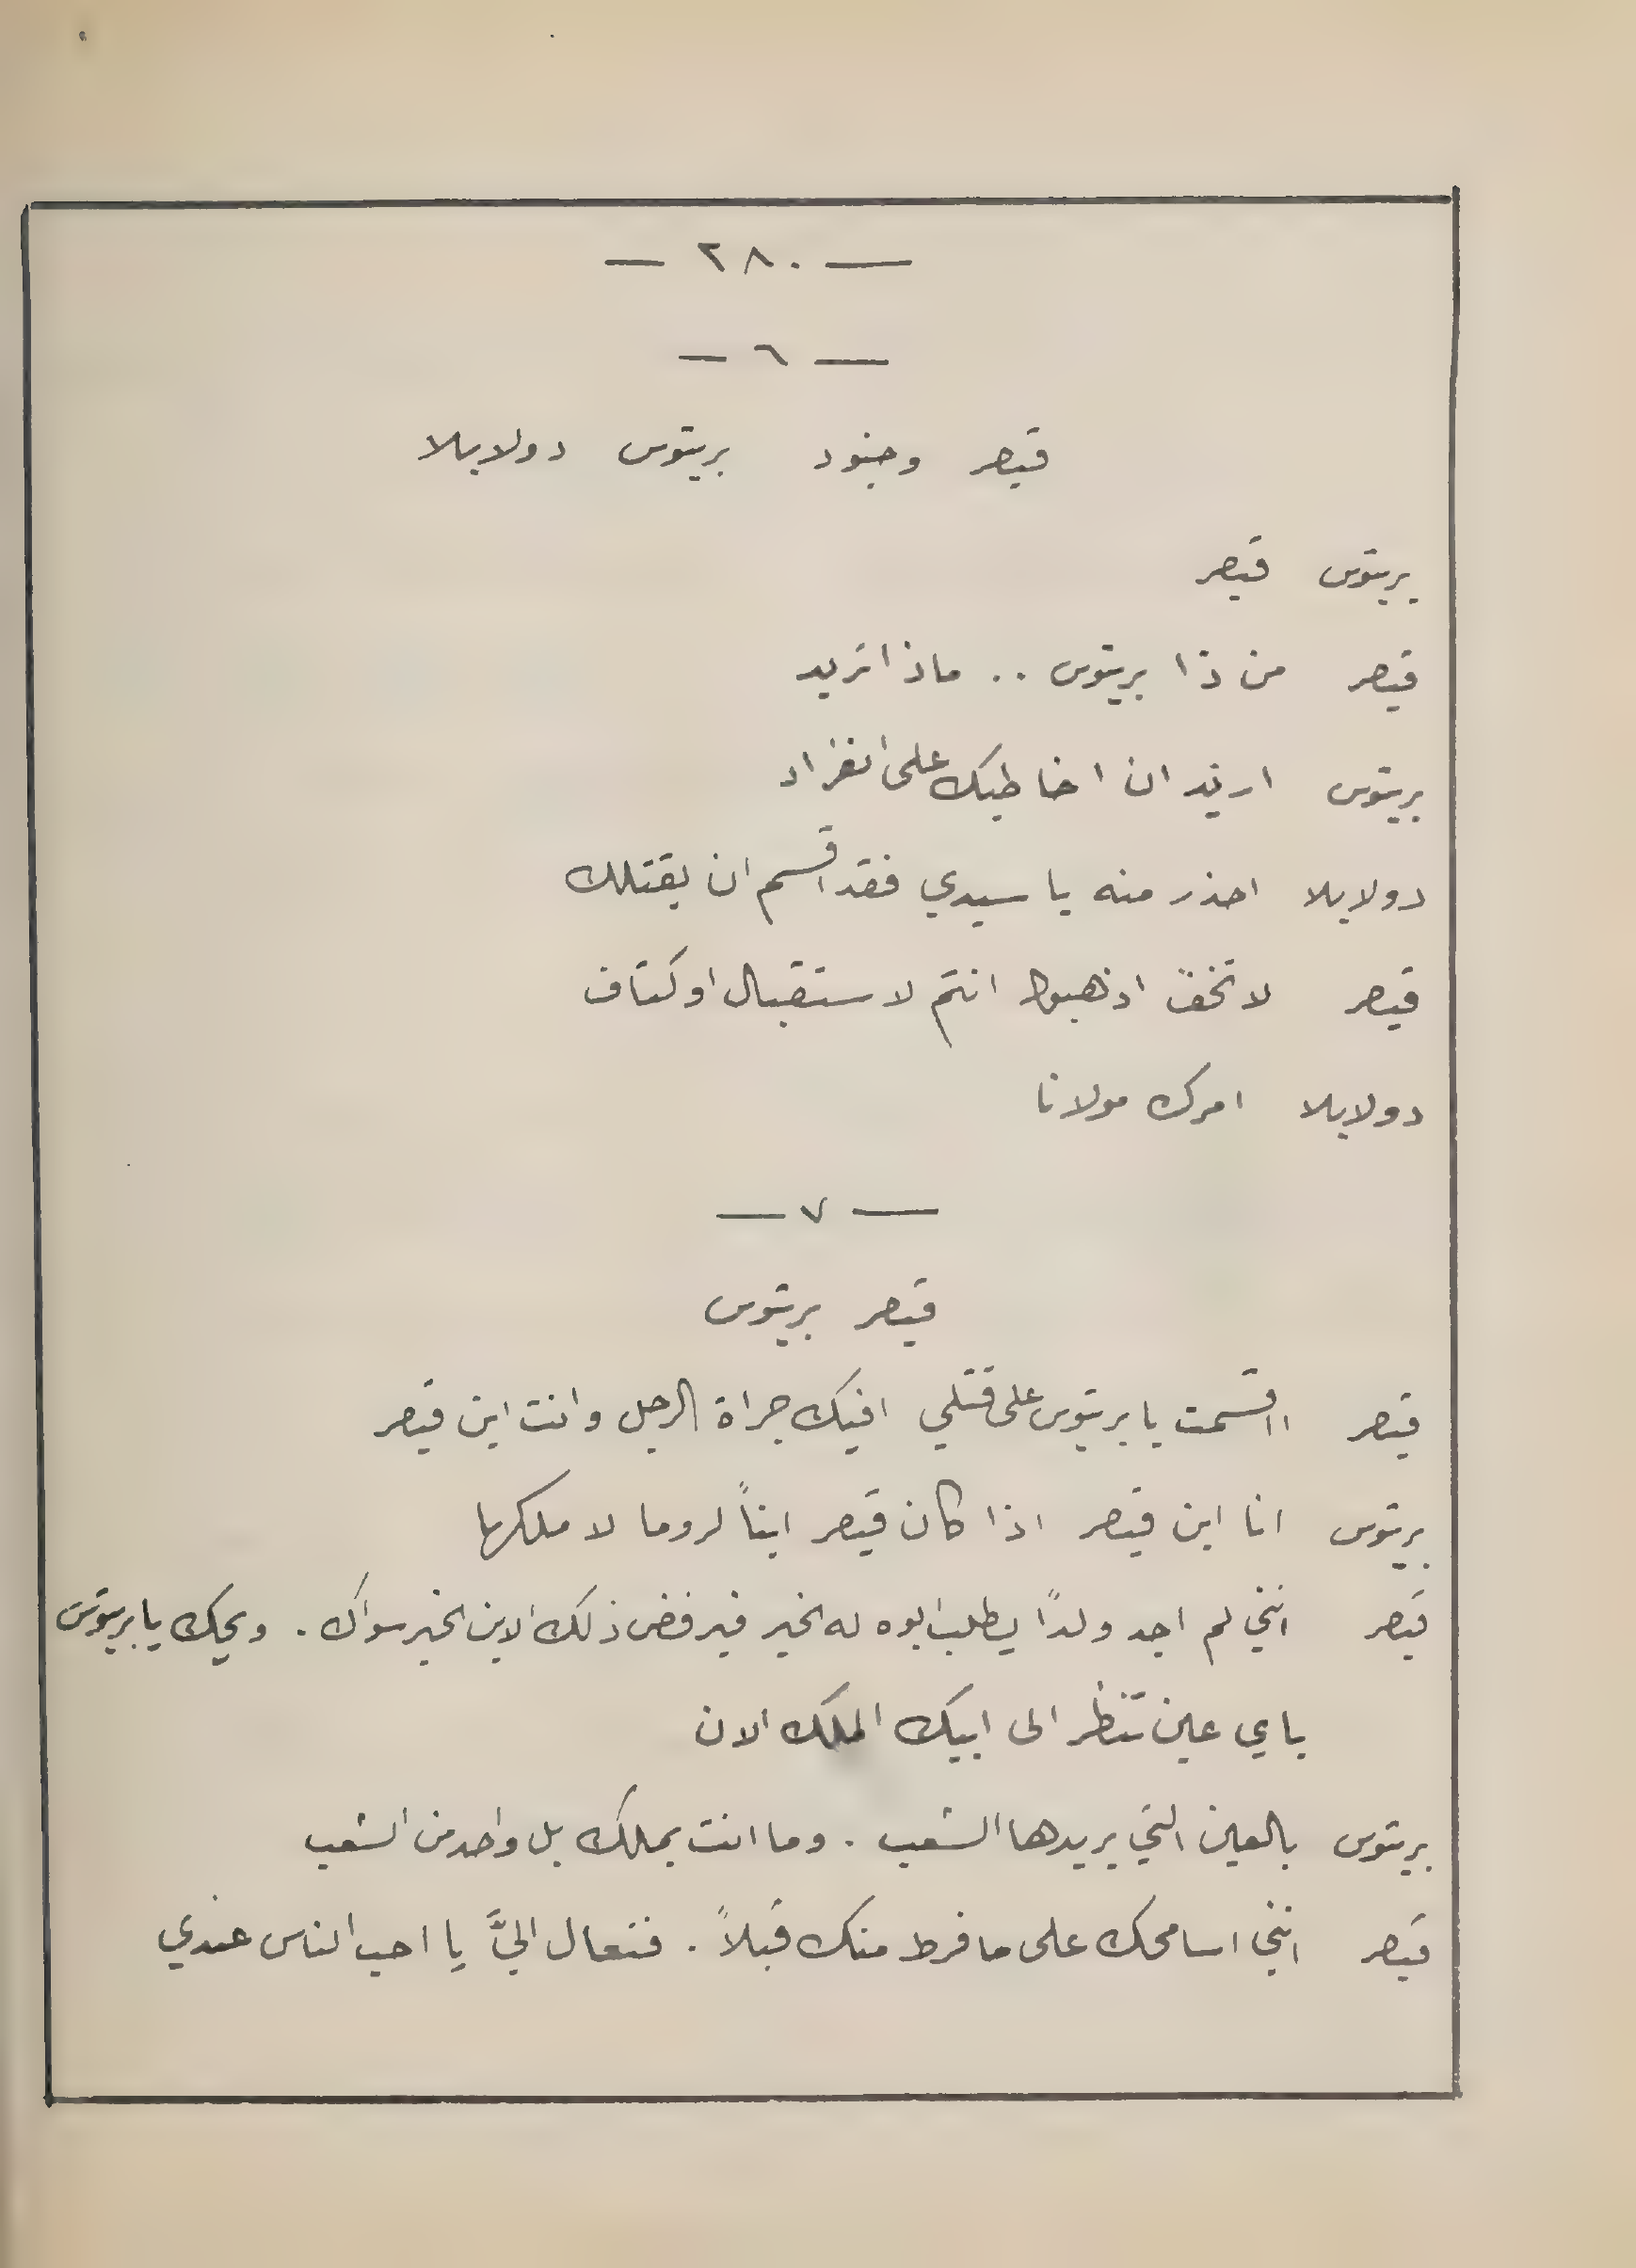 — ٢٨٠ —
— ٦ —
قيصر وجنود بريتوس دولابيلا
بريتوس قيصر
قيصر من ذا بريتوس .. ماذا تريد
بريتوس اريد ان اخاطبك على انفراد
دولابيلا احذر منه يا سيدي فقد اقسم ان يقتلك
قيصر لا تخف اذهبوا انتم لاستقبال اوكتاف
دولابيلا امرك مولانا
— ٧ —
قيصر بريتوس
قيصر ااقسمت يا بريتوس على قتلي افيك جراة الرجل وانت ابن قيصر
بريتوس انا ابن قيصر اذا كان قيصر ابناً لروما لا ملكها
قيصر انني لم اجد ولدًا يطلب ابوه له الخير فيرفض ذلك الابن الخير سواك . ويحك يا بريتوس
باي عين تنظر الى ابيك الملك الان
بريتوس بالعين التي يريدها الشعب . وما انت بملك بل واحد من الشعب
قيصر انني اسامحك على ما فرط منك قبلاً . فتعال اليَّ يا احب الناس عندي